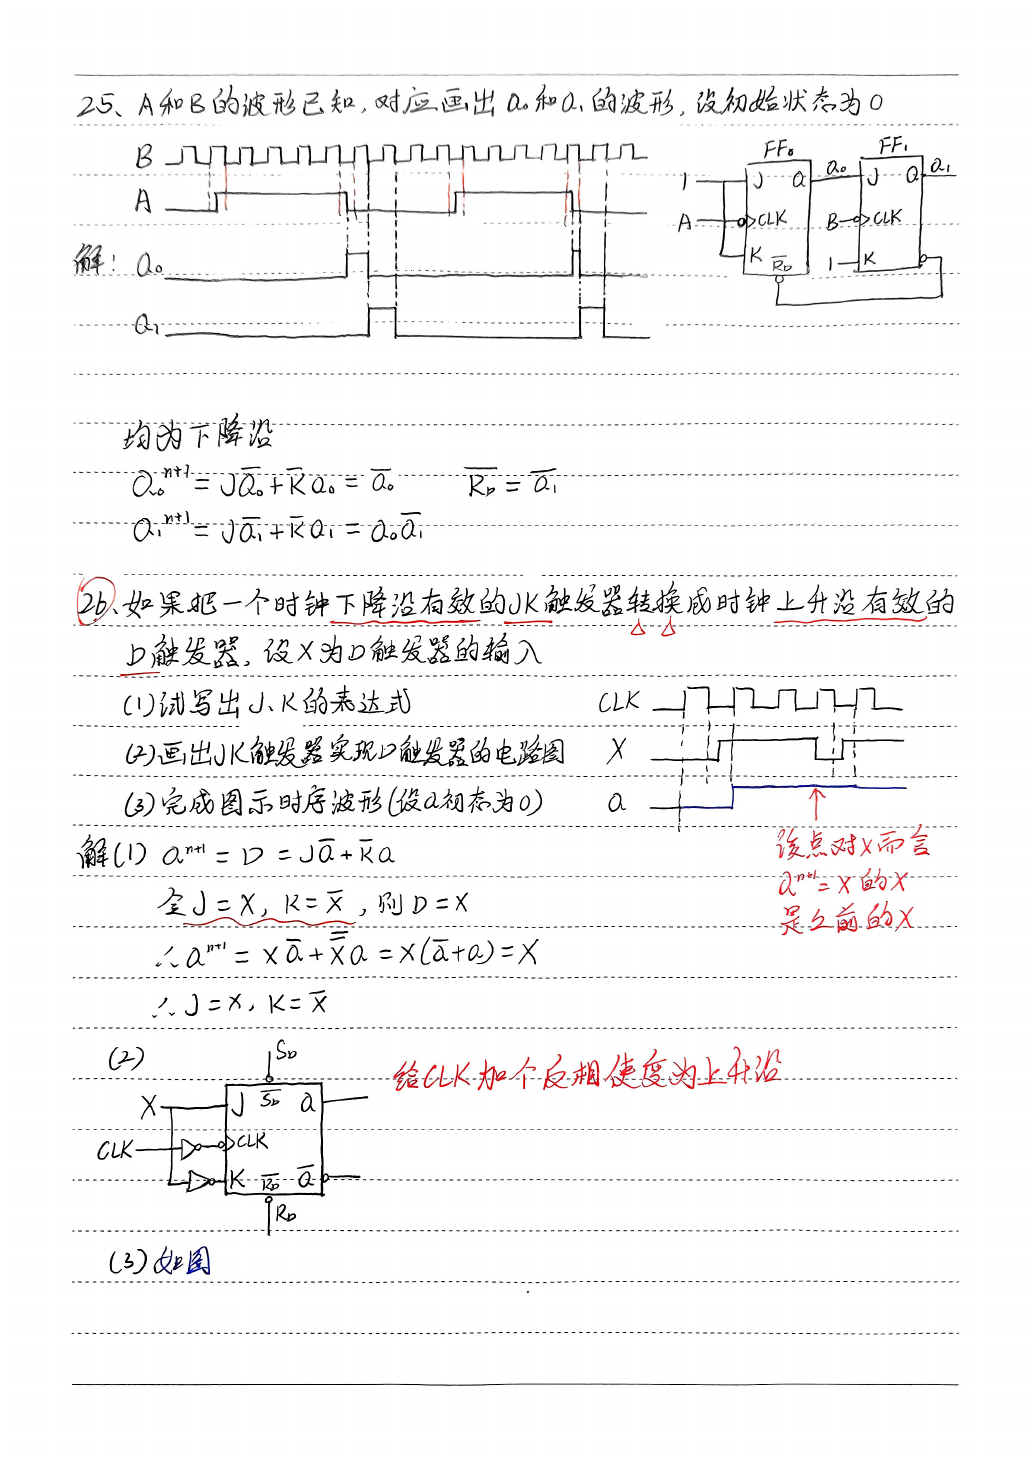 25、A和B的波形已知,对应画出Q₀和Q₁的波形,设初始状态为0
B
A
解:
Q₀
Q₁
FF₀ FF₁
1 J Q Q₀ J Q Q₁
A CLK B CLK
K R̅ᴅ 1 K
均为下降沿
Q₀ⁿ⁺¹ = JQ̅₀ + K̅Q₀ = Q̅₀ R̅ᴅ = Q̅₁
Q₁ⁿ⁺¹ = JQ̅₁ + K̅Q₁ = Q₀Q̅₁
26、如果把一个时钟下降沿有效的JK触发器转换成时钟上升沿有效的
D触发器,设X为D触发器的输入
(1)试写出J、K的表达式
(2)画出JK触发器实现D触发器的电路图
(3)完成图示时序波形(设Q初态为0)
CLK
X
Q
该点对X而言
Qⁿ⁺¹=X的X
是之前的X
解(1) Qⁿ⁺¹ = D = JQ̅ + K̅Q
令J=X, K=X̅,则D=X
∴Qⁿ⁺¹ = XQ̅ + X̿Q = X(Q̅+Q) = X
∴J=X, K=X̅
(2)
Sᴅ
X J S̅ᴅ Q
CLK CLK
K R̅ᴅ Q̅
Rᴅ
给CLK加个反相使度为上升沿
(3)如图